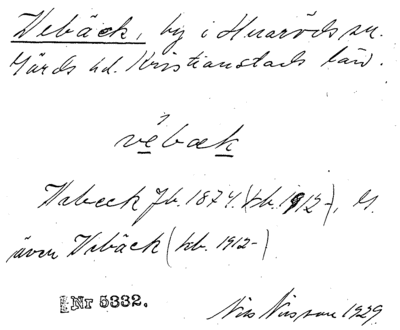 Vebäck, by i Huaröds sn.
Gärds hd. Kristianstads län.
vèbæk
Vabeck Jb. 1874. (kb. 1912-), G.
även Vebäck (kb. 1912-)
Nr 5332.
Nils Nilsson 1929